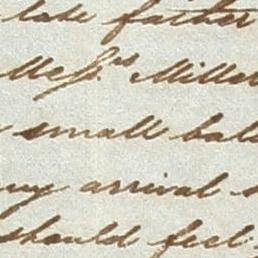 late father
Messrs Miller
small bal
my arrival
should feel